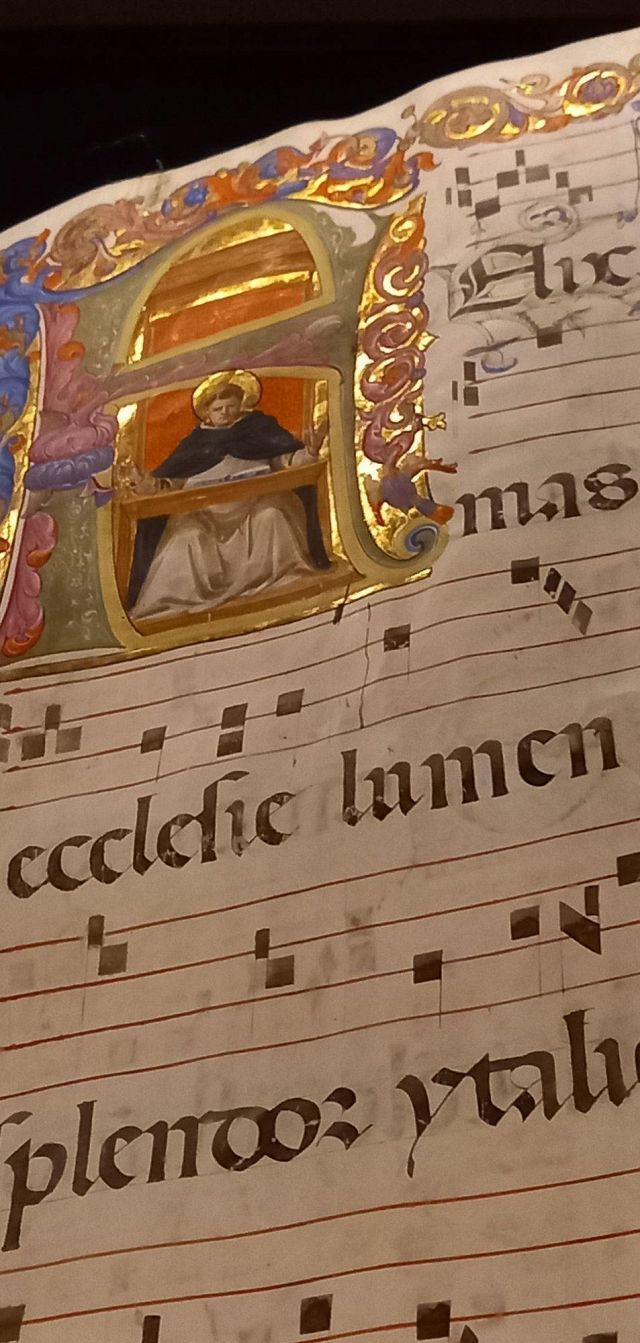 FElix
mas
ecclesie lumen
splendor ytali